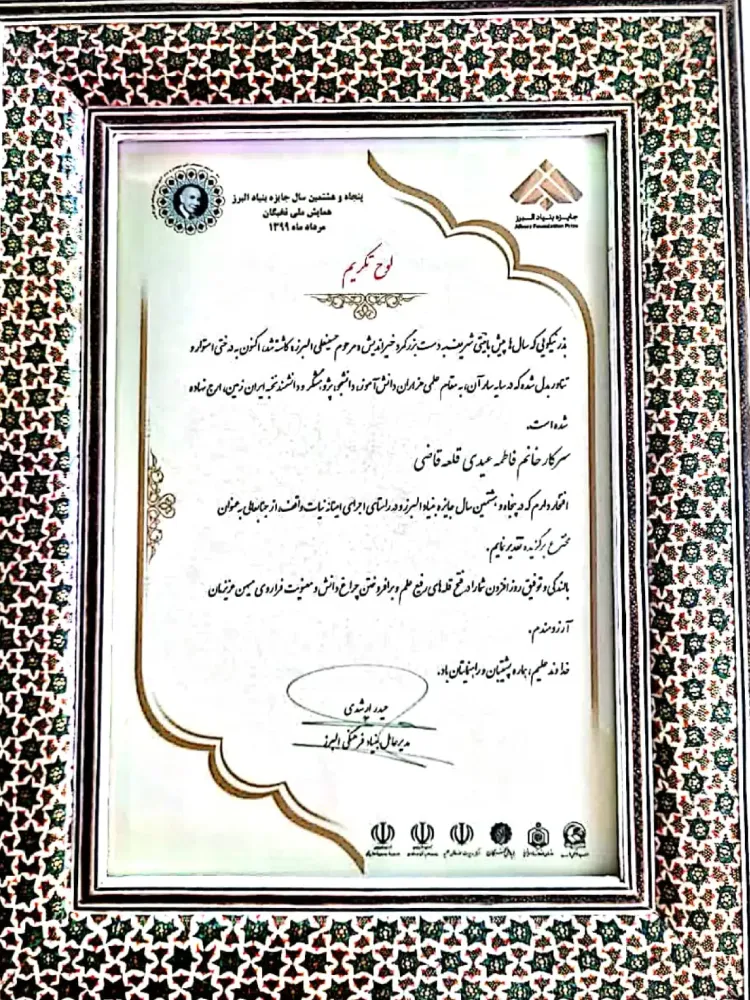 پنجاه و هشتمین سال جایزه بنیاد البرز
همایش ملی نخبگان
مرداد ماه ۱۳۹۹
جایزه بنیاد البرز
Alborz Foundation Prize
لوح تکریم
بذر نیکویی که سال‌ها پیش با نیتی شریف به دست بزرگمرد خیراندیش مرحوم حسینعلی البرز، کاشته شد، اکنون به درختی استوار و
تناور بدل شده که در سایه سار آن، به مقام علمی هزاران دانش‌آموز، دانشجو، پژوهشگر و دانشمند نخبه ایران زمین، ارج نهاده
شده است.
سرکار خانم فاطمه عیدی قلعه قاضی
افتخار دارم که در پنجاه و هشتمین سال جایزه بنیاد البرز و در راستای اجرای نیات واقف، از جنابعالی به عنوان
مخترع برگزیده تقدیر نمایم.
بالندگی و توفیق روز افزون شما را در فتح قله‌های رفیع علم و برافروختن چراغ دانش و معنویت فراروی میهن عزیزمان
آرزومندم.
خداوند علیم، هماره پشتیبان و راهنمایتان باد.
حیدر ارشدی
مدیرعامل بنیاد فرهنگی البرز